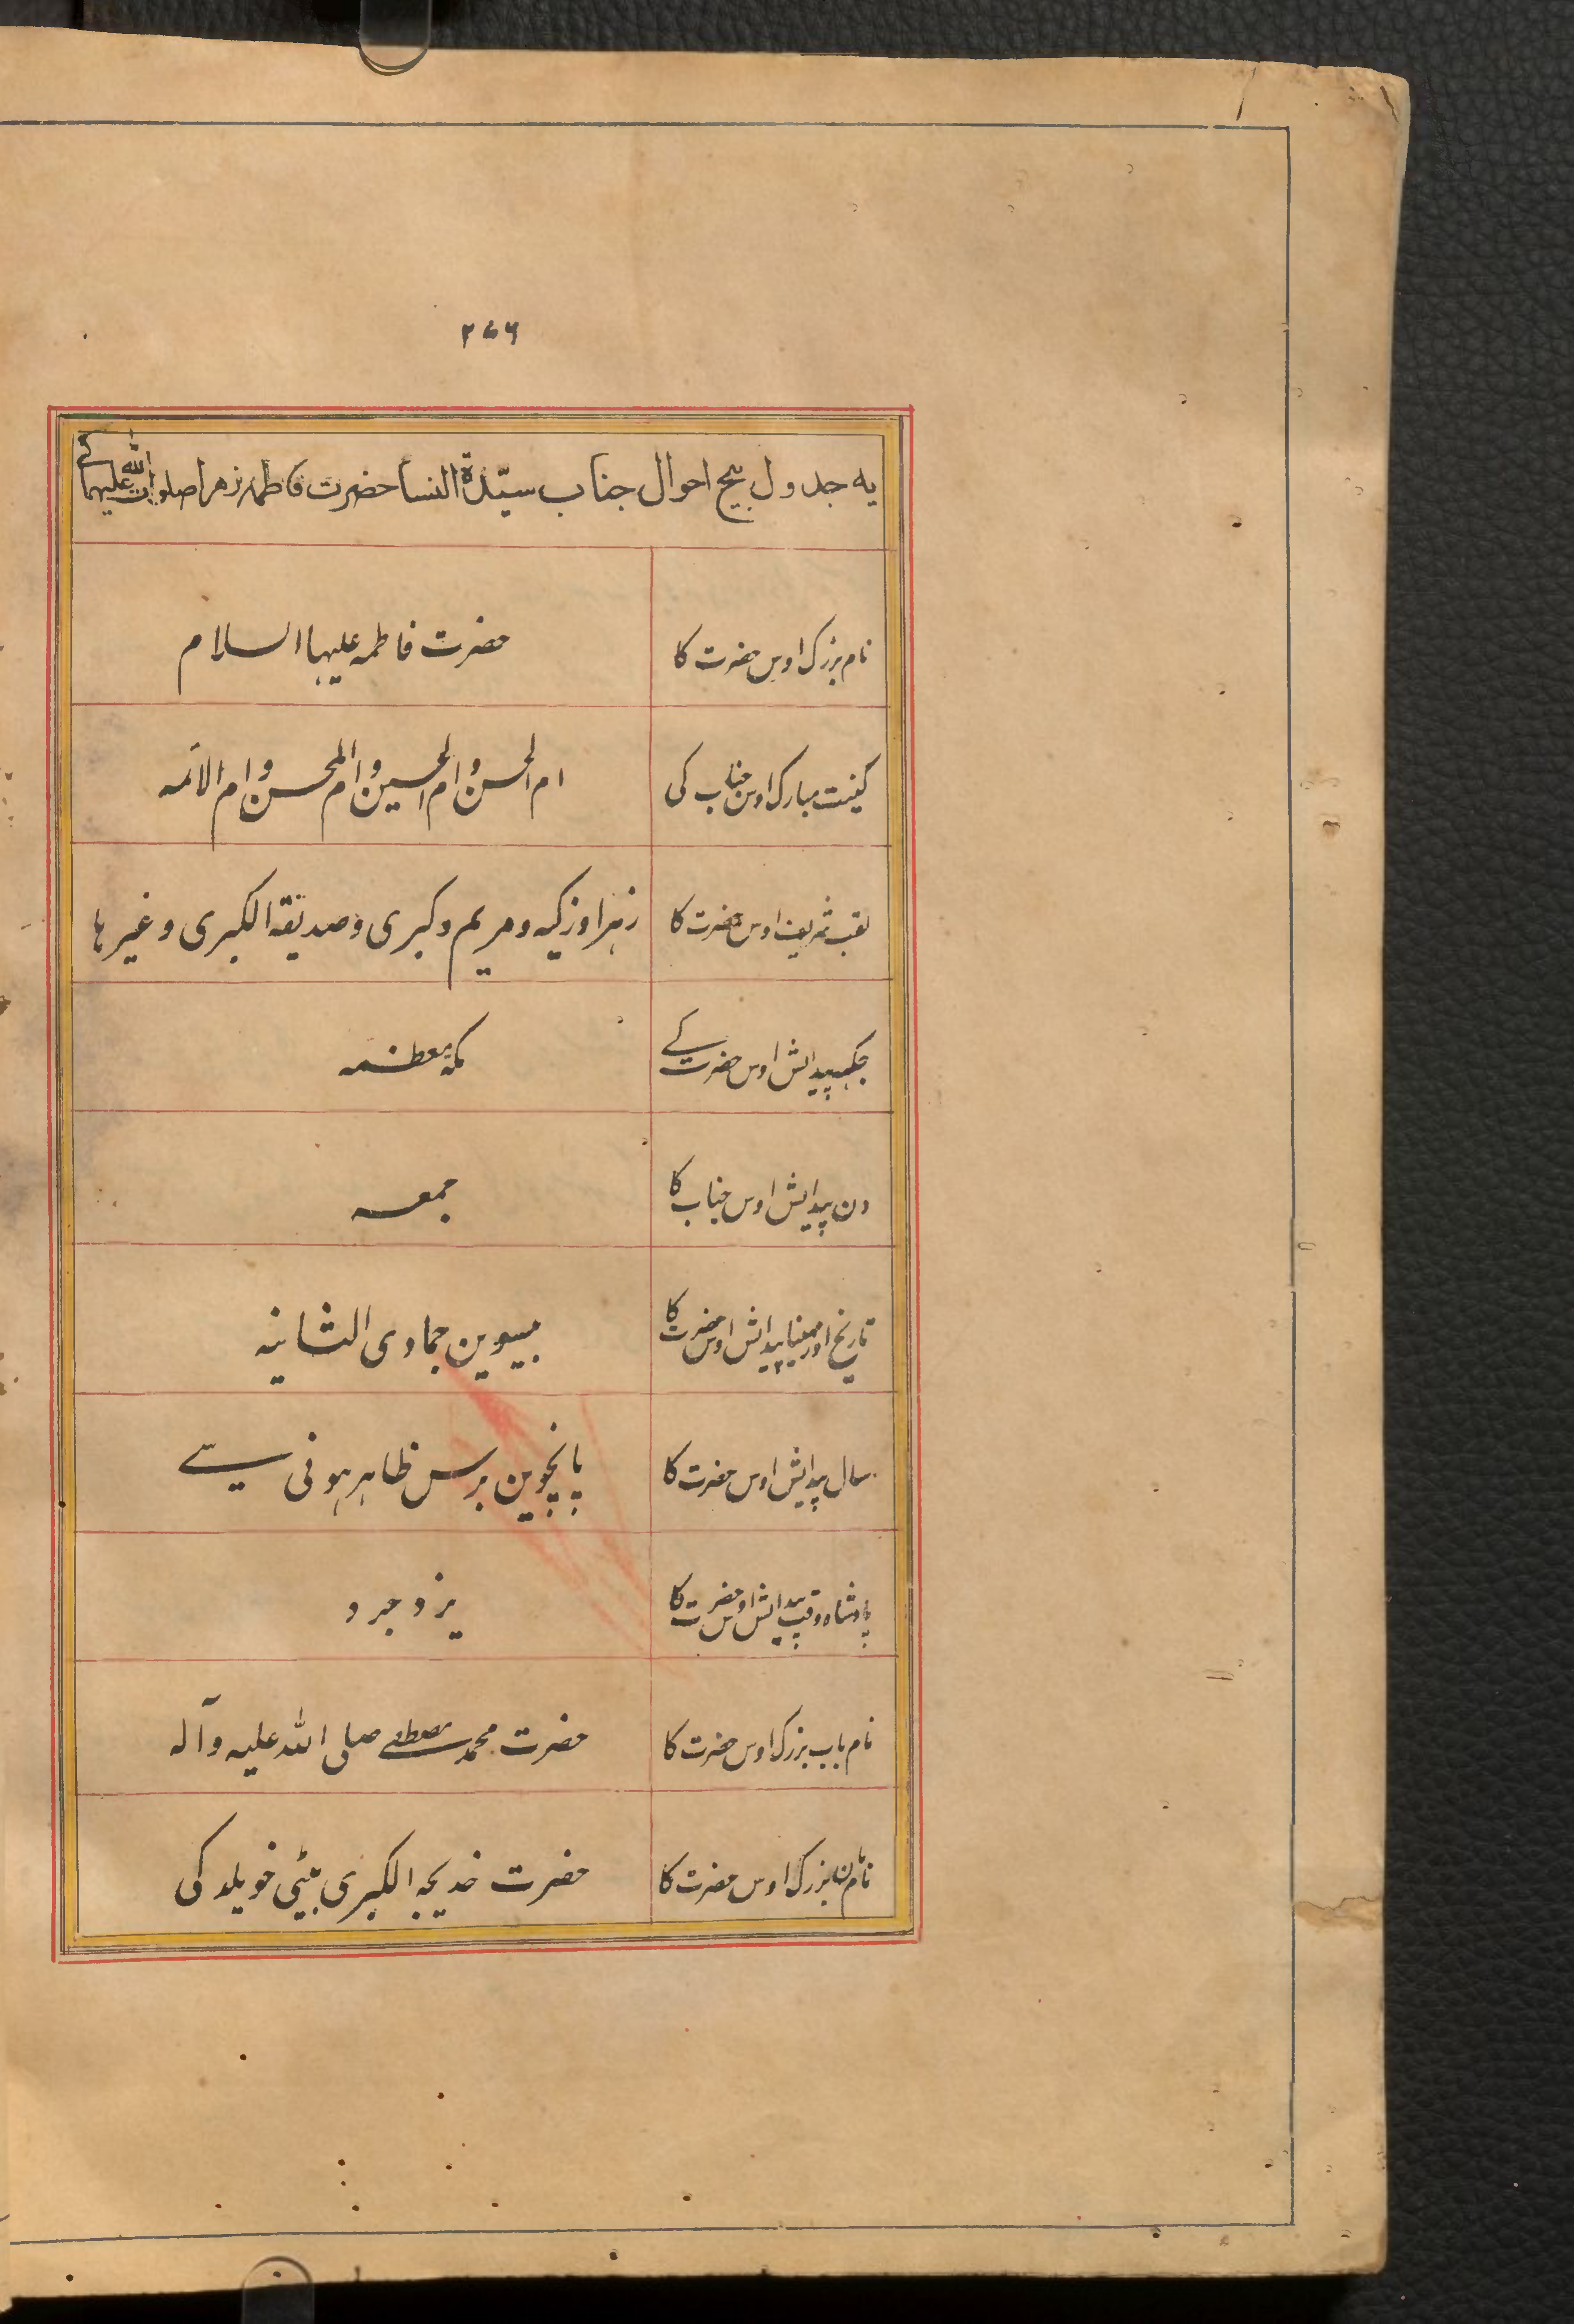 ۲۷۶
یه جدول بیچ احوال جناب سیّدة النسا حضرت فاطمه زهرا صلوات الله علیها کے
نام بزرک اوس حضرت کا حضرت فاطمه علیہا السلام
کنیت مبارک اوس جناب کی ام الحسن و ام الحسین و ام المحسن و ام الائمه
لقب شریف اوس حضرت کا زہرا و زکیه و مریم و کبری و صدیقة الکبری و غیرہا
جکہہ پیدایش اوس حضرت کے مکّه معظمه
دن پیدایش اوس جناب کا جمعه
تاریخ اور مہینا پیدایش اوس حضرت کا بیسوین جمادی الثانیه
سال پیدایش اوس حضرت کا پانچوین برس ظاہر ہونی سے
پادشاه وقت پیدایش اوس حضرت کا یزدجرد
نام باپ بزرک اوس حضرت کا حضرت محمد مصطفے صلی الله علیه وآله
نام مان بزرک اوس حضرت کا حضرت خدیجه الکبری بیٹی خویلد کی